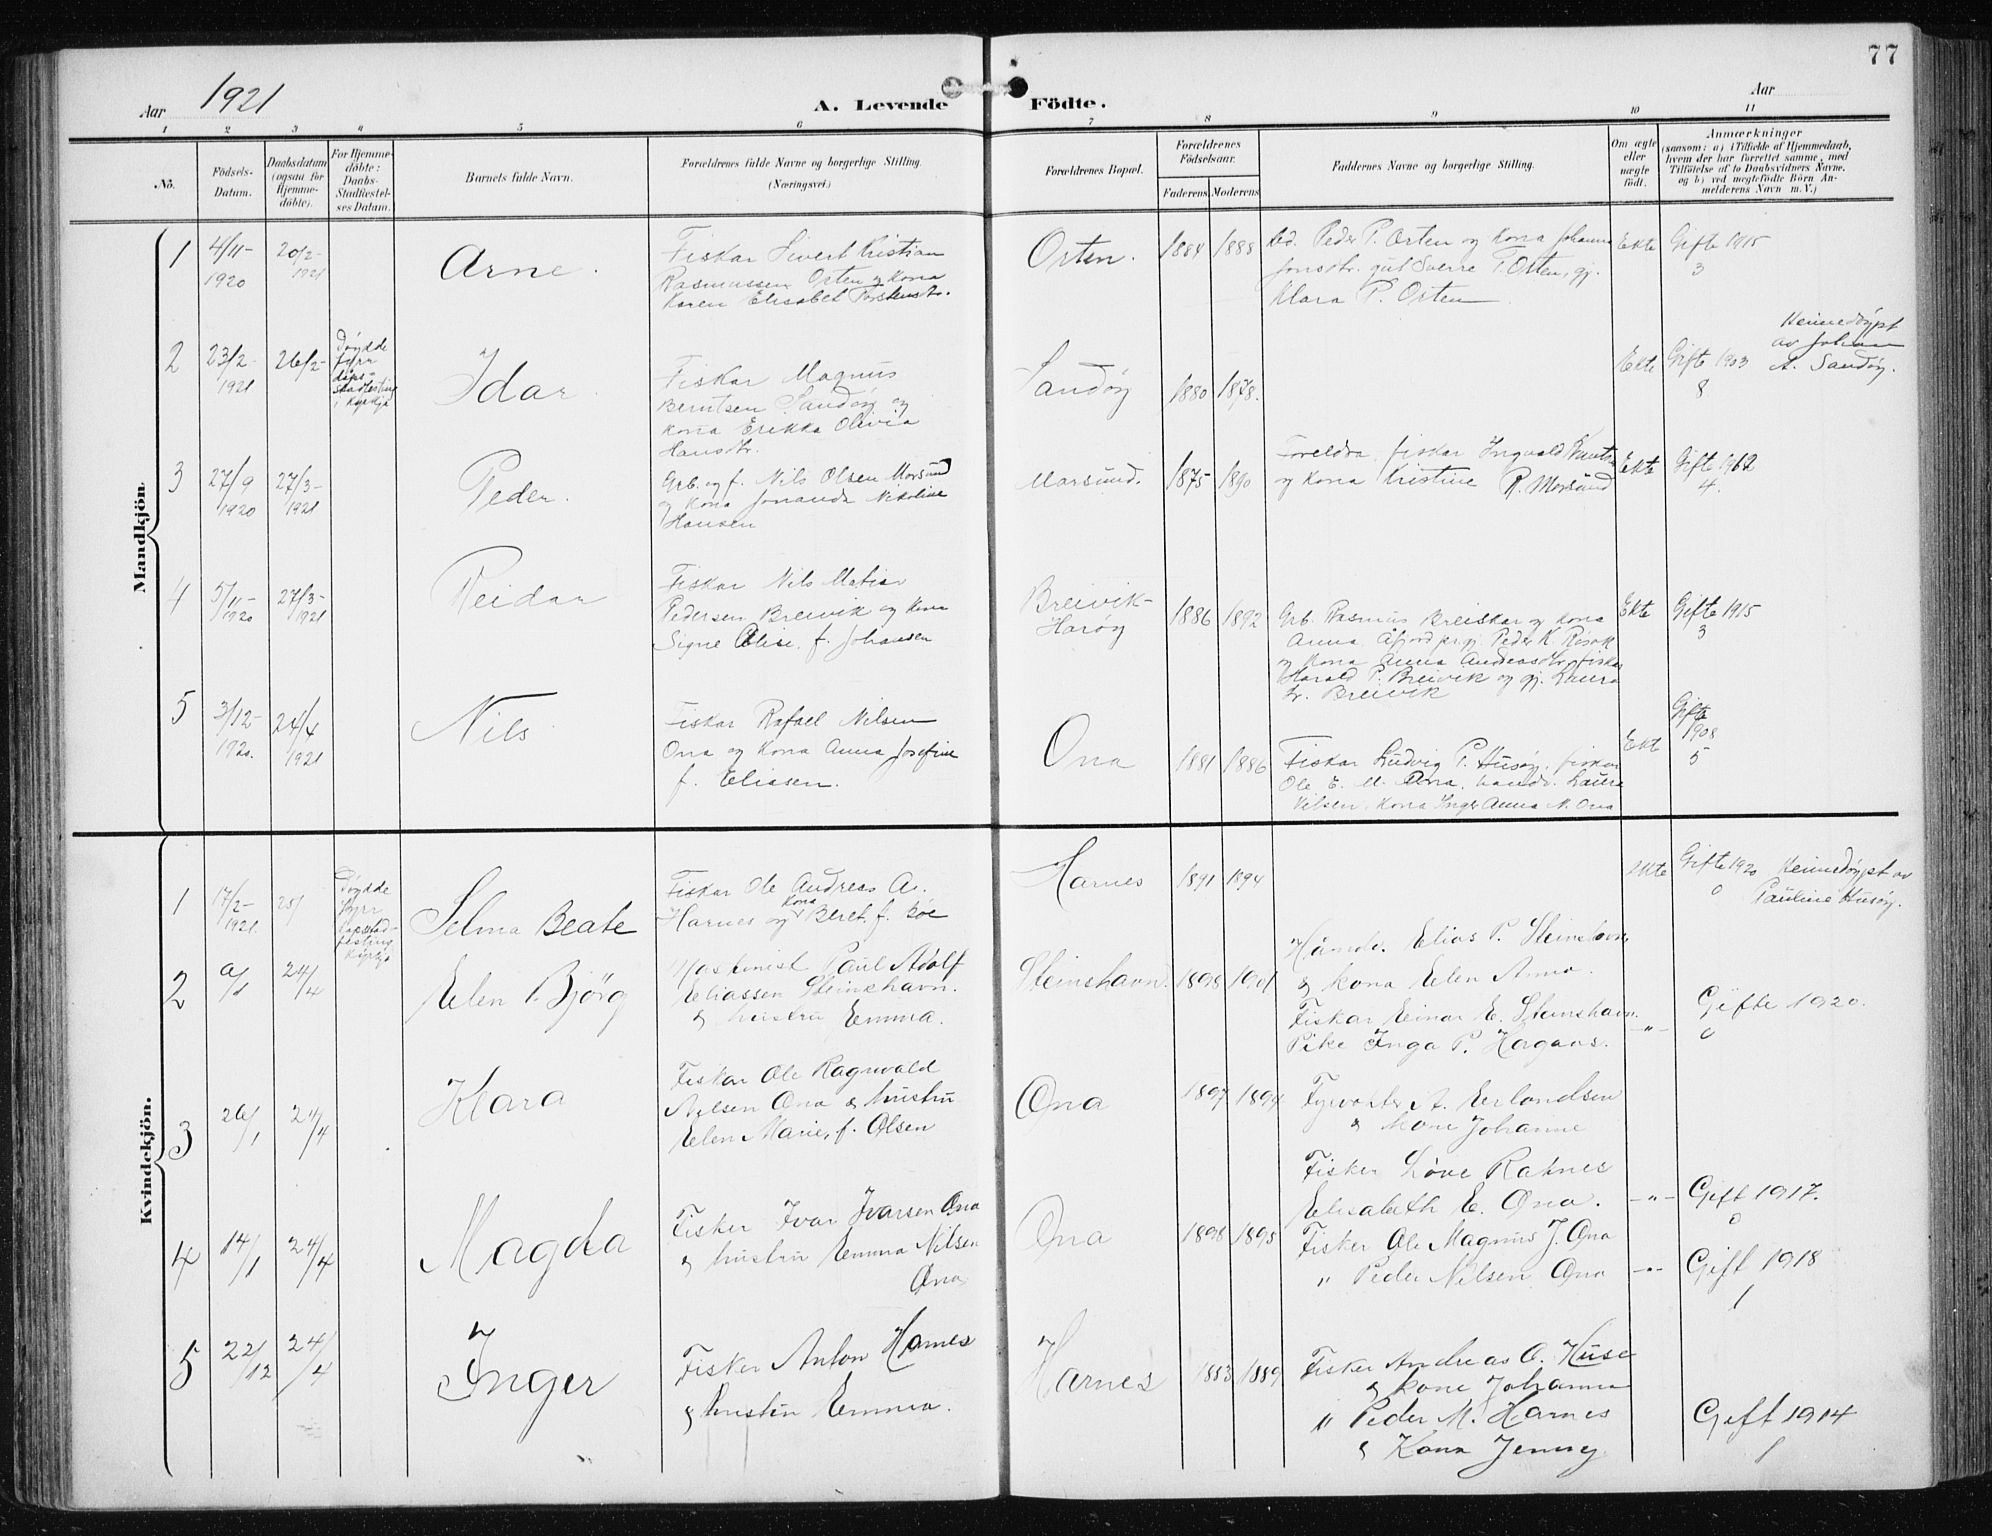 77
Aar 1921
A. Levende Födte.
Aar
1 2 3 4 5 6 7 8 9 10 11
No.
Födsels-
Datum.
Daabsdatum
(ogsaa for
Hjemme-
döbte).
For Hjemme-
döbte:
Daabs-
Stadfæstel-
ses Datum.
Barnets fulde Navn.
Forældrenes fulde Navne og borgerlige Stilling.
(Næringsvei.)
Forældrenes Bopæl.
Forældrenes
Födselsaar.
Faderens. Moderens.
Faddernes Navne og borgerlige Stilling.
Om ægte
eller
uægte
födt.
Anmærkninger
(saasom: a) i Tilfælde af Hjemmedaab,
hvem der har forrettet samme, med
Tilföielse af to Daabsvidners Navne.
og b) ved uægtefödte Börn An-
melderens Navn m. V.)
Mandkjön.
1
4/11-
1920
20/2-
1921
Arne.
Fiskar Sivert Kristian
Rasmussen Orten og kona
Karen Elisabet
Orten.
1884 1888
Peder P. Orten og kona Johanna
Jonsdtr. gut Sverre P. Orten, gj.
Klara P. Orten
Ekte
Gifte 1915
3
2
23/2-
1921
26/2-
Döydde
fyrr
dåps-
stadfesting
i kyrkja
Idar.
Fiskar Magnus
Berntsen Sandöy og
kona Erikka Olivia
Hansdtr.
Sandöy
1880 1878.
Ekte
Gifte 1903
8
Heimedöypt
av Johan
A. Sandöy.
3
27/9
1920
27/3-
1921
Peder.
Grb. og f. Nils Olsen Morsund
og kona Jonanda Nikoline
Hansen
Morsund.
1875 1890
Foreldra, fiskar Ingvald
og kona Kristine R. Morsund
Ekte
Gifte 1912
4.
4
5/11-
1920
27/3-
1921
Reidar
Fiskar Nils Matias
Pedersen Breivik og kona
Signe Elise f. Johansen
Breivik-
Haröy
1886 1892
Grb. Rasmus Breiskar og kona
Anna, Peder K. Rösok
og kona Anna Andreasdtr., fiskar
Harald P. Breivik og gj. Laura
Breivik
Ekte
Gifte 1915
3
5
3/12-
1920.
24/4
1921
Nils
Fiskar Rafael Nilsen
Ona og kona Anna Josefine
f. Eliasen.
Ona
1881 1886
Fiskar Ludvig P. Husöy, fiskar
Ole E. M. Ona, Laura
Nilsen, kona Inger Anna N. Ona
Ekte
Gifte
1908
5
Kvindekjön.
1
17/2-
1921.
25/
Döydde
fyrr
Selma Beate
Fiskar Ole Andreas A.
Harnes og kona Beret f. Böe
Harnes
1891 1894
ekte
Gifte 1920
0
Heimedöypt av
Pauline Husöy.
2
9/1
24/4
Elen Bjórg
Maskinist Paul Adolf
Eliassen Steinshavn.
& hustru Emma.
Steinshavn.
1898 1901
Håndv. Elias P. Steinshavn,
& kona Elen Anna.
Fiskar Einar E. Steinshavn.
Pike Inga P. Hagaas.
-"-
Gifte 1920.
0
3
29/1
24/4
Klara
Fiskar Ole Ragnvald
Nilsen Ona & hustru
Elen Marie, f. Olsen
Ona
1897 1894
Fyrvokter A. Erlandsen
& kone Johanne
Fisker Löve Raknes
Elisabeth E. Ona.
-"-
Gift 1917.
0
4
14/1
24/4
Magda
Fisker Ivar Ivarsen Ona
& hustru Emma Nilsen
Ona
Ona
1898 1895
Fisker Ole Magnus J. Ona
" Peder Nilsen Ona
-"-
Gift 1918
1
5
22/12
24/4
Inger
Fisker Anton Harnes
& hustru Emma.
Harnes
1883 1889
Fisker Andreas O. Huse
& kone Johanna
" Peder M. Harnes
& Kona Jenny
Gift 1914
1